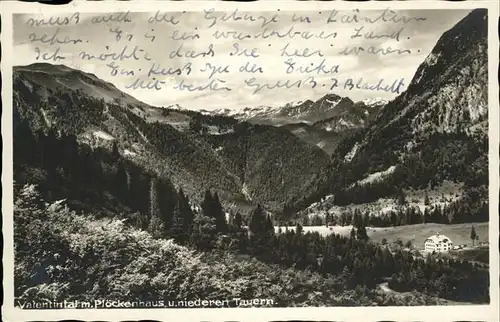 muss auch die Gebirge in Kärnten
sehen. Es ist ein wunderbares Land.
Ich möchte, dass Sie hier waren.
Ein Kuss zu der Erika
mit bestem Gruss
Valentintal m. Plöckenhaus u. niederen Tauern.